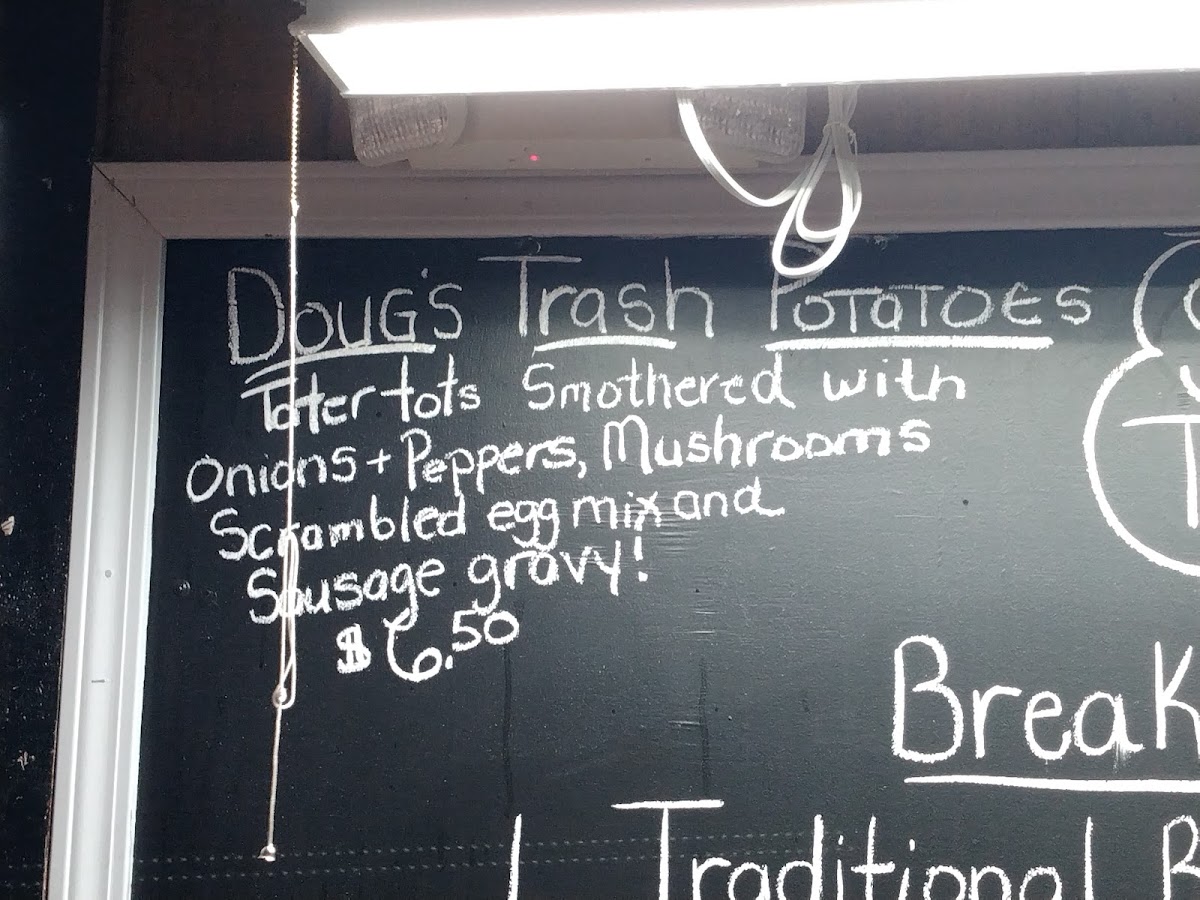 Doug's Trash Potatoes
Tater tots Smothered with
Onions + Peppers, Mushrooms
Scrambled egg mix and
Sausage gravy!
$6.50
1 Traditional